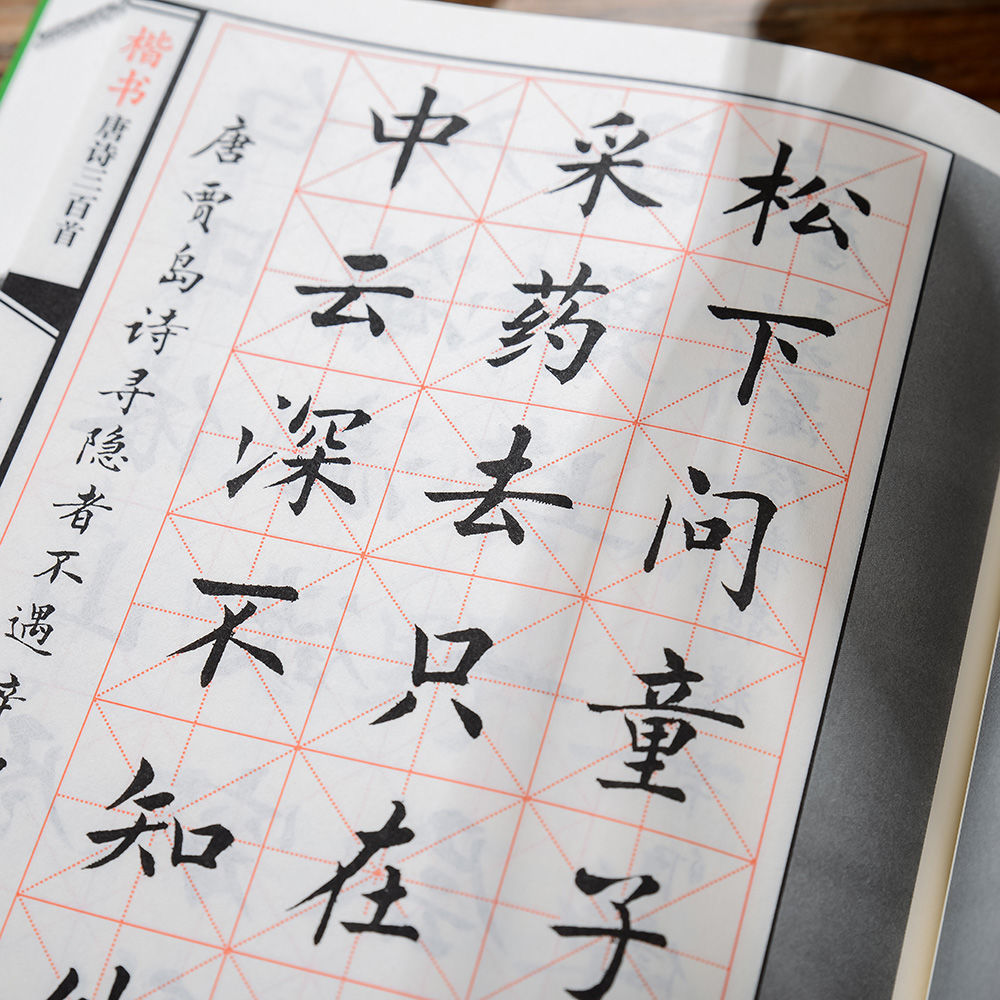 松下问童子
采药去只在
中云深不知
唐贾岛诗寻隐者不遇
楷书
唐诗三百首